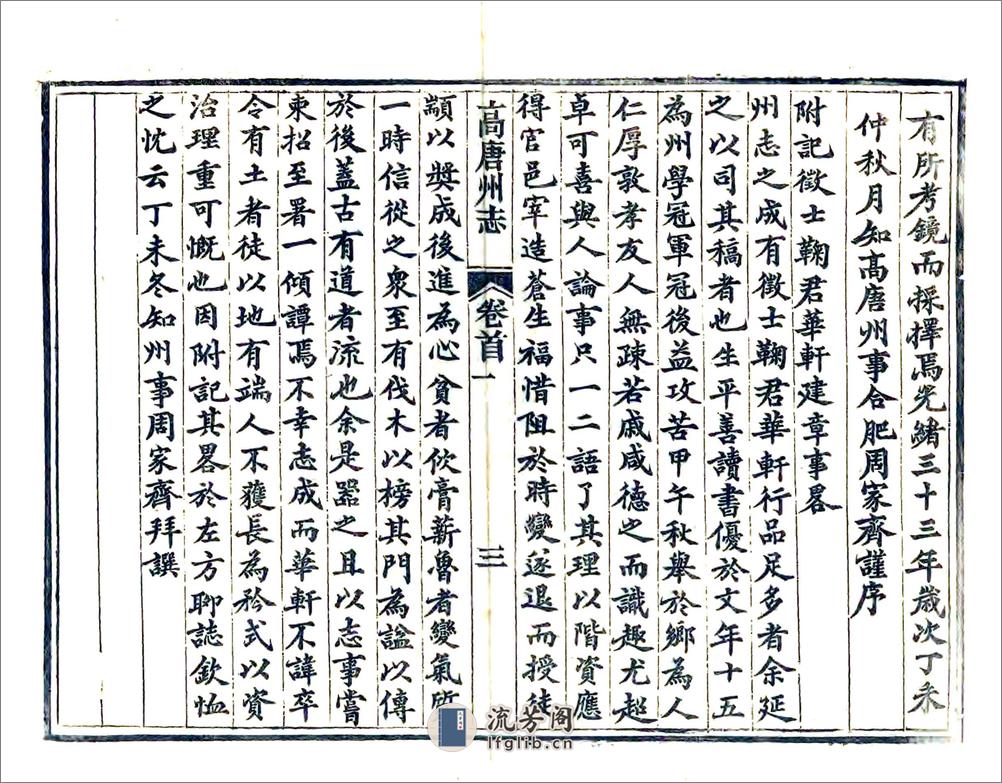 有所考鏡而採擇焉光緒三十三年歲次丁未
仲秋月知高唐州事合肥周家齊謹序
附記徵士鞠君華軒建章事畧
州志之成有徵士鞠君華軒行品足多者余延
之以司其稿者也生平善讀書優於文年十五
為州學冠軍冠後益攻苦甲午秋舉於鄉為人
仁厚敦孝友人無疎若戚咸德之而識趣尤超
卓可喜與人論事只一二語了其理以階資應
得官邑宰造蒼生福惜阻於時變遂退而授徒
高唐州志 卷首一 三
顓以獎成後進為心貧者佽膏薪魯者變氣質
一時信從之眾至有伐木以榜其門為謚以傳
於後蓋古有道者流也余是器之且以志事嘗
柬招至署一傾譚焉不幸志成而華軒不諱卒
令有土者徒以地有端人不獲長為矜式以資
治理重可慨也因附記其畧於左方聊誌欽恤
之忱云丁未冬知州事周家齊拜譔
流芳阁
lfglib.cn